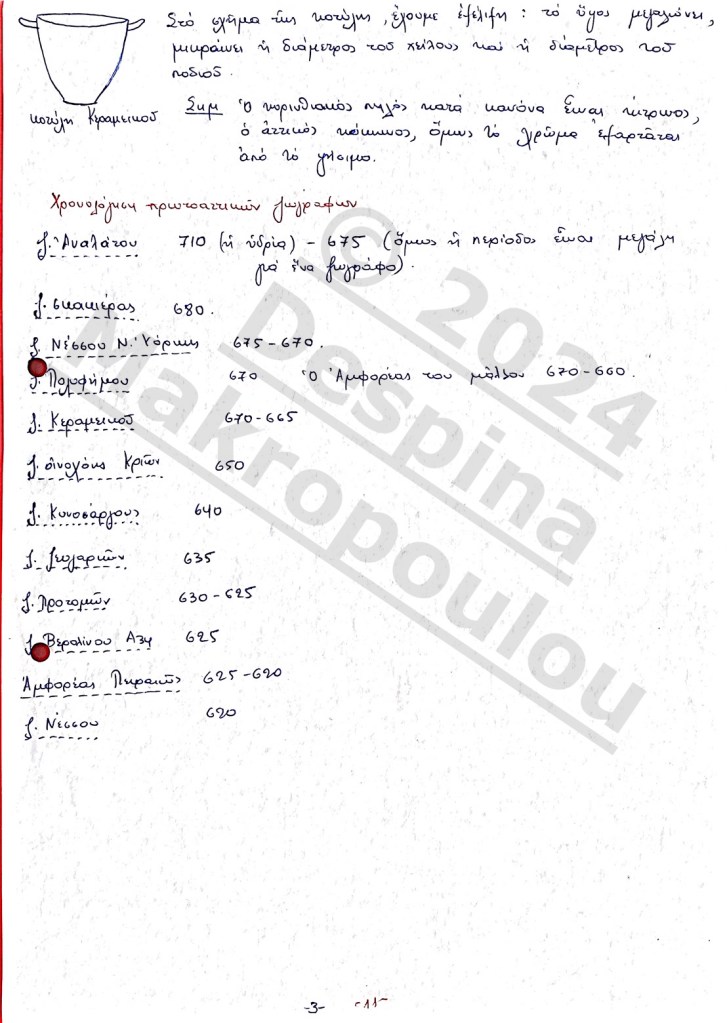 Στό σχῆμα τῆς κοτύλης, ἔχουμε ἐξέλιξη: τό ὕψος μεγαλώνει,
μικραίνει ἡ διάμετρος τοῦ χείλους καί ἡ διάμετρος τοῦ
ποδιοῦ.
κοτύλη Κεραμεικοῦ
Σημ Ὁ κορινθιακός πηλός κατά κανόνα εἶναι κίτρινος,
ὁ ἀττικός κόκκινος, ὅμως τό χρῶμα ἐξαρτᾶται
ἀπό τό ψήσιμο.
Χρονολόγηση πρωτοαττικῶν ζωγράφων
ζ. Ἀναλάτου 710 (ἡ ὑδρία) - 675 (ὅμως ἡ περίοδος εἶναι μεγάλη
γιά ἕνα ζωγράφο).
ζ. σκακιέρας 680.
ζ. Νέσσου Ν. Ὑόρκης 675-670.
ζ. Πολυφήμου 670 Ὁ Ἀμφορέας του μᾶλλον 670-660.
ζ. Κεραμεικοῦ 670-665
ζ. οἰνοχόης Κριῶν 650
ζ. Κυνοσάργους 640
ζ. ζευγαριῶν 635
ζ. Προτομῶν 630-625
ζ. Βερολίνου Α34 625
Ἀμφορέας Πειραιῶς 625-620
ζ. Νέσσου 620
© 2024
Despina
Makropoulou
-3- -11-